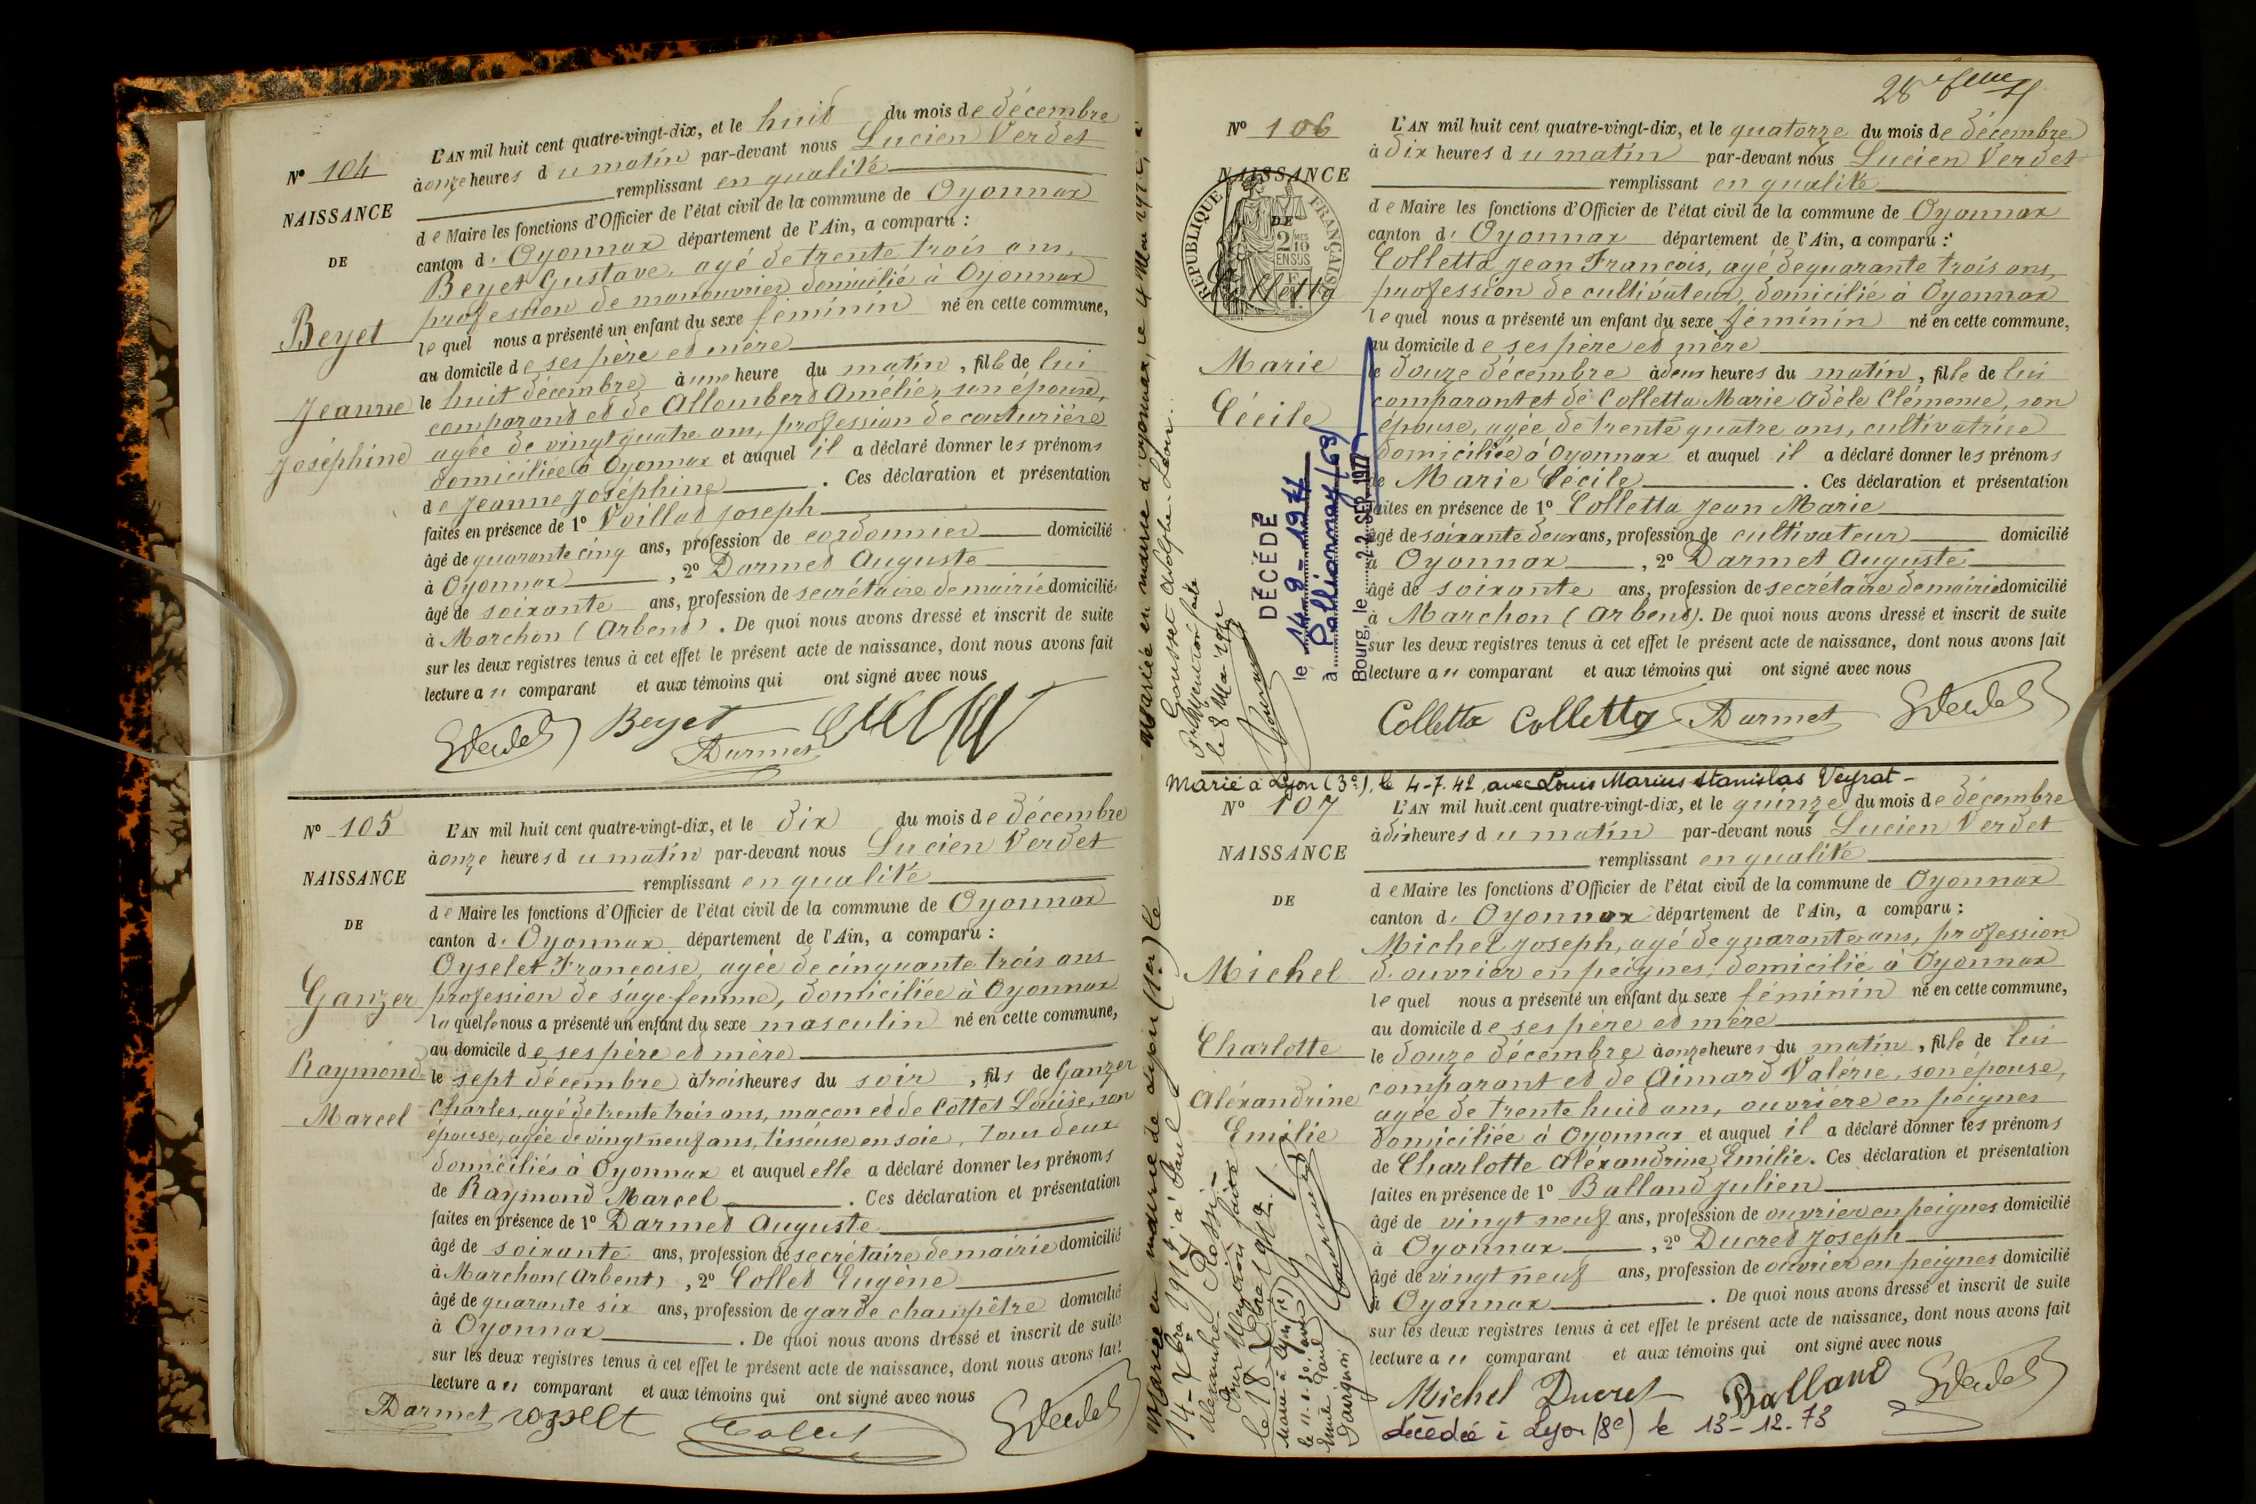 Nº 104
NAISSANCE
DE
Beyet
Jeanne
Joséphine
L'AN mil huit cent quatre-vingt-dix, et le huit du mois de décembre
à onze heures du matin par-devant nous Lucien Verdet
remplissant en qualité
de Maire les fonctions d'Officier de l'état civil de la commune de Oyonnax
canton d' Oyonnax département de l'Ain, a comparu :
Beyet Gustave, agé de trente trois ans,
profession de manouvrier domicilié à Oyonnax
lequel nous a présenté un enfant du sexe féminin né en cette commune,
au domicile de ses père et mère
le huit décembre à une heure du matin, fille de lui
comparant et de Allombert Amélie, son épouse,
agée de vingt quatre ans, profession de couturière
domiciliée à Oyonnax et auquel il a déclaré donner les prénoms
de Jeanne Joséphine . Ces déclaration et présentation
faites en présence de 1º Voillat Joseph
âgé de quarante cinq ans, profession de cordonnier domicilié
à Oyonnax , 2º Darmet Auguste
âgé de soixante ans, profession de secrétaire de mairie domicilié
à Marchon (Arbent). De quoi nous avons dressé et inscrit de suite
sur les deux registres tenus à cet effet le présent acte de naissance, dont nous avons fait
lecture au comparant et aux témoins qui ont signé avec nous
Beyet
Darmet
Nº 105
NAISSANCE
DE
Ganzer
Raymond
Marcel
L'AN mil huit cent quatre-vingt-dix, et le dix du mois de décembre
à onze heures du matin par-devant nous Lucien Verdet
remplissant en qualité
de Maire les fonctions d'Officier de l'état civil de la commune de Oyonnax
canton d' Oyonnax département de l'Ain, a comparu :
Oyselet Françoise, agée de cinquante trois ans
profession de sage-femme, domiciliée à Oyonnax
laquelle nous a présenté un enfant du sexe masculin né en cette commune,
au domicile de ses père et mère
le sept décembre à trois heures du soir , fils de Ganzer
Charles, agé de trente trois ans, maçon et de Cottet Louise, son
épouse, agée de vingt neuf ans, tisseuse en soie, tous deux
domiciliés à Oyonnax et auquel elle a déclaré donner les prénoms
de Raymond Marcel . Ces déclaration et présentation
faites en présence de 1º Darmet Auguste
âgé de soixante ans, profession de secrétaire de mairie domicilié
à Marchon (Arbent) , 2º Collet Eugène
âgé de quarante six ans, profession de garde champêtre domicilié
à Oyonnax . De quoi nous avons dressé et inscrit de suite
sur les deux registres tenus à cet effet le présent acte de naissance, dont nous avons fait
lecture au comparant et aux témoins qui ont signé avec nous
Darmet
Collet
Nº 106
NAISSANCE
DE
RÉPUBLIQUE FRANÇAISE
2/10 EN SUS
Colletta
Marie
Cécile
L'AN mil huit cent quatre-vingt-dix, et le quatorze du mois de décembre
à dix heures du matin par-devant nous Lucien Verdet
remplissant en qualité
de Maire les fonctions d'Officier de l'état civil de la commune de Oyonnax
canton d' Oyonnax département de l'Ain, a comparu :
Colletta Jean François, agé de quarante trois ans,
profession de cultivateur, domicilié à Oyonnax
lequel nous a présenté un enfant du sexe féminin né en cette commune,
au domicile de ses père et mère
le douze décembre à deux heures du matin, fille de lui
comparant et de Colletta Marie Adèle Clémence, son
épouse, agée de trente quatre ans, cultivatrice
domiciliée à Oyonnax et auquel il a déclaré donner les prénoms
de Marie Cécile . Ces déclaration et présentation
faites en présence de 1º Colletta Jean Marie
âgé de soixante deux ans, profession de cultivateur domicilié
à Oyonnax , 2º Darmet Auguste
âgé de soixante ans, profession de secrétaire de mairie domicilié
à Marchon (Arbent). De quoi nous avons dressé et inscrit de suite
sur les deux registres tenus à cet effet le présent acte de naissance, dont nous avons fait
lecture au comparant et aux témoins qui ont signé avec nous
Colletta Colletta Darmet
Mariée en mairie d'Oyonnax, le 4 Mai 1912, à
Gousset Adolphe Léon.
Pr Mention faite
le 8 Mai 1912
DÉCÉDÉ
le 14-9-1977
à Pollionnay (69)
Bourg, le 22 SEP. 1977
Marié à Lyon (3e), le 4-7-42 avec Louis Marius Stanislas Veyrat -
Nº 107
NAISSANCE
DE
Michel
Charlotte
Aléxandrine
Emilie
L'AN mil huit cent quatre-vingt-dix, et le quinze du mois de décembre
à dix heures du matin par-devant nous Lucien Verdet
remplissant en qualité
de Maire les fonctions d'Officier de l'état civil de la commune de Oyonnax
canton d' Oyonnax département de l'Ain, a comparu :
Michel Joseph, agé de quarante ans, profession
d'ouvrier en peignes, domicilié à Oyonnax
lequel nous a présenté un enfant du sexe féminin né en cette commune,
au domicile de ses père et mère
le douze décembre à onze heures du matin, fille de lui
comparant et de Aimard Valérie, son épouse,
agée de trente huit ans, ouvrière en peignes
domiciliée à Oyonnax et auquel il a déclaré donner les prénoms
de Charlotte Aléxandrine Emilie. Ces déclaration et présentation
faites en présence de 1º Balland Julien
âgé de vingt neuf ans, profession de ouvrier en peignes domicilié
à Oyonnax , 2º Ducret Joseph
âgé de vingt neuf ans, profession de ouvrier en peignes domicilié
à Oyonnax . De quoi nous avons dressé et inscrit de suite
sur les deux registres tenus à cet effet le présent acte de naissance, dont nous avons fait
lecture au comparant et aux témoins qui ont signé avec nous
Michel Ducret Balland
Décédée à Lyon (8e) le 13-12-73
Mariée en mairie de Lyon (1er) le
14 Xbre 1912, à Paul
Alexandre Rossi.-
Pour Mention faite
le 18 Xbre 1912